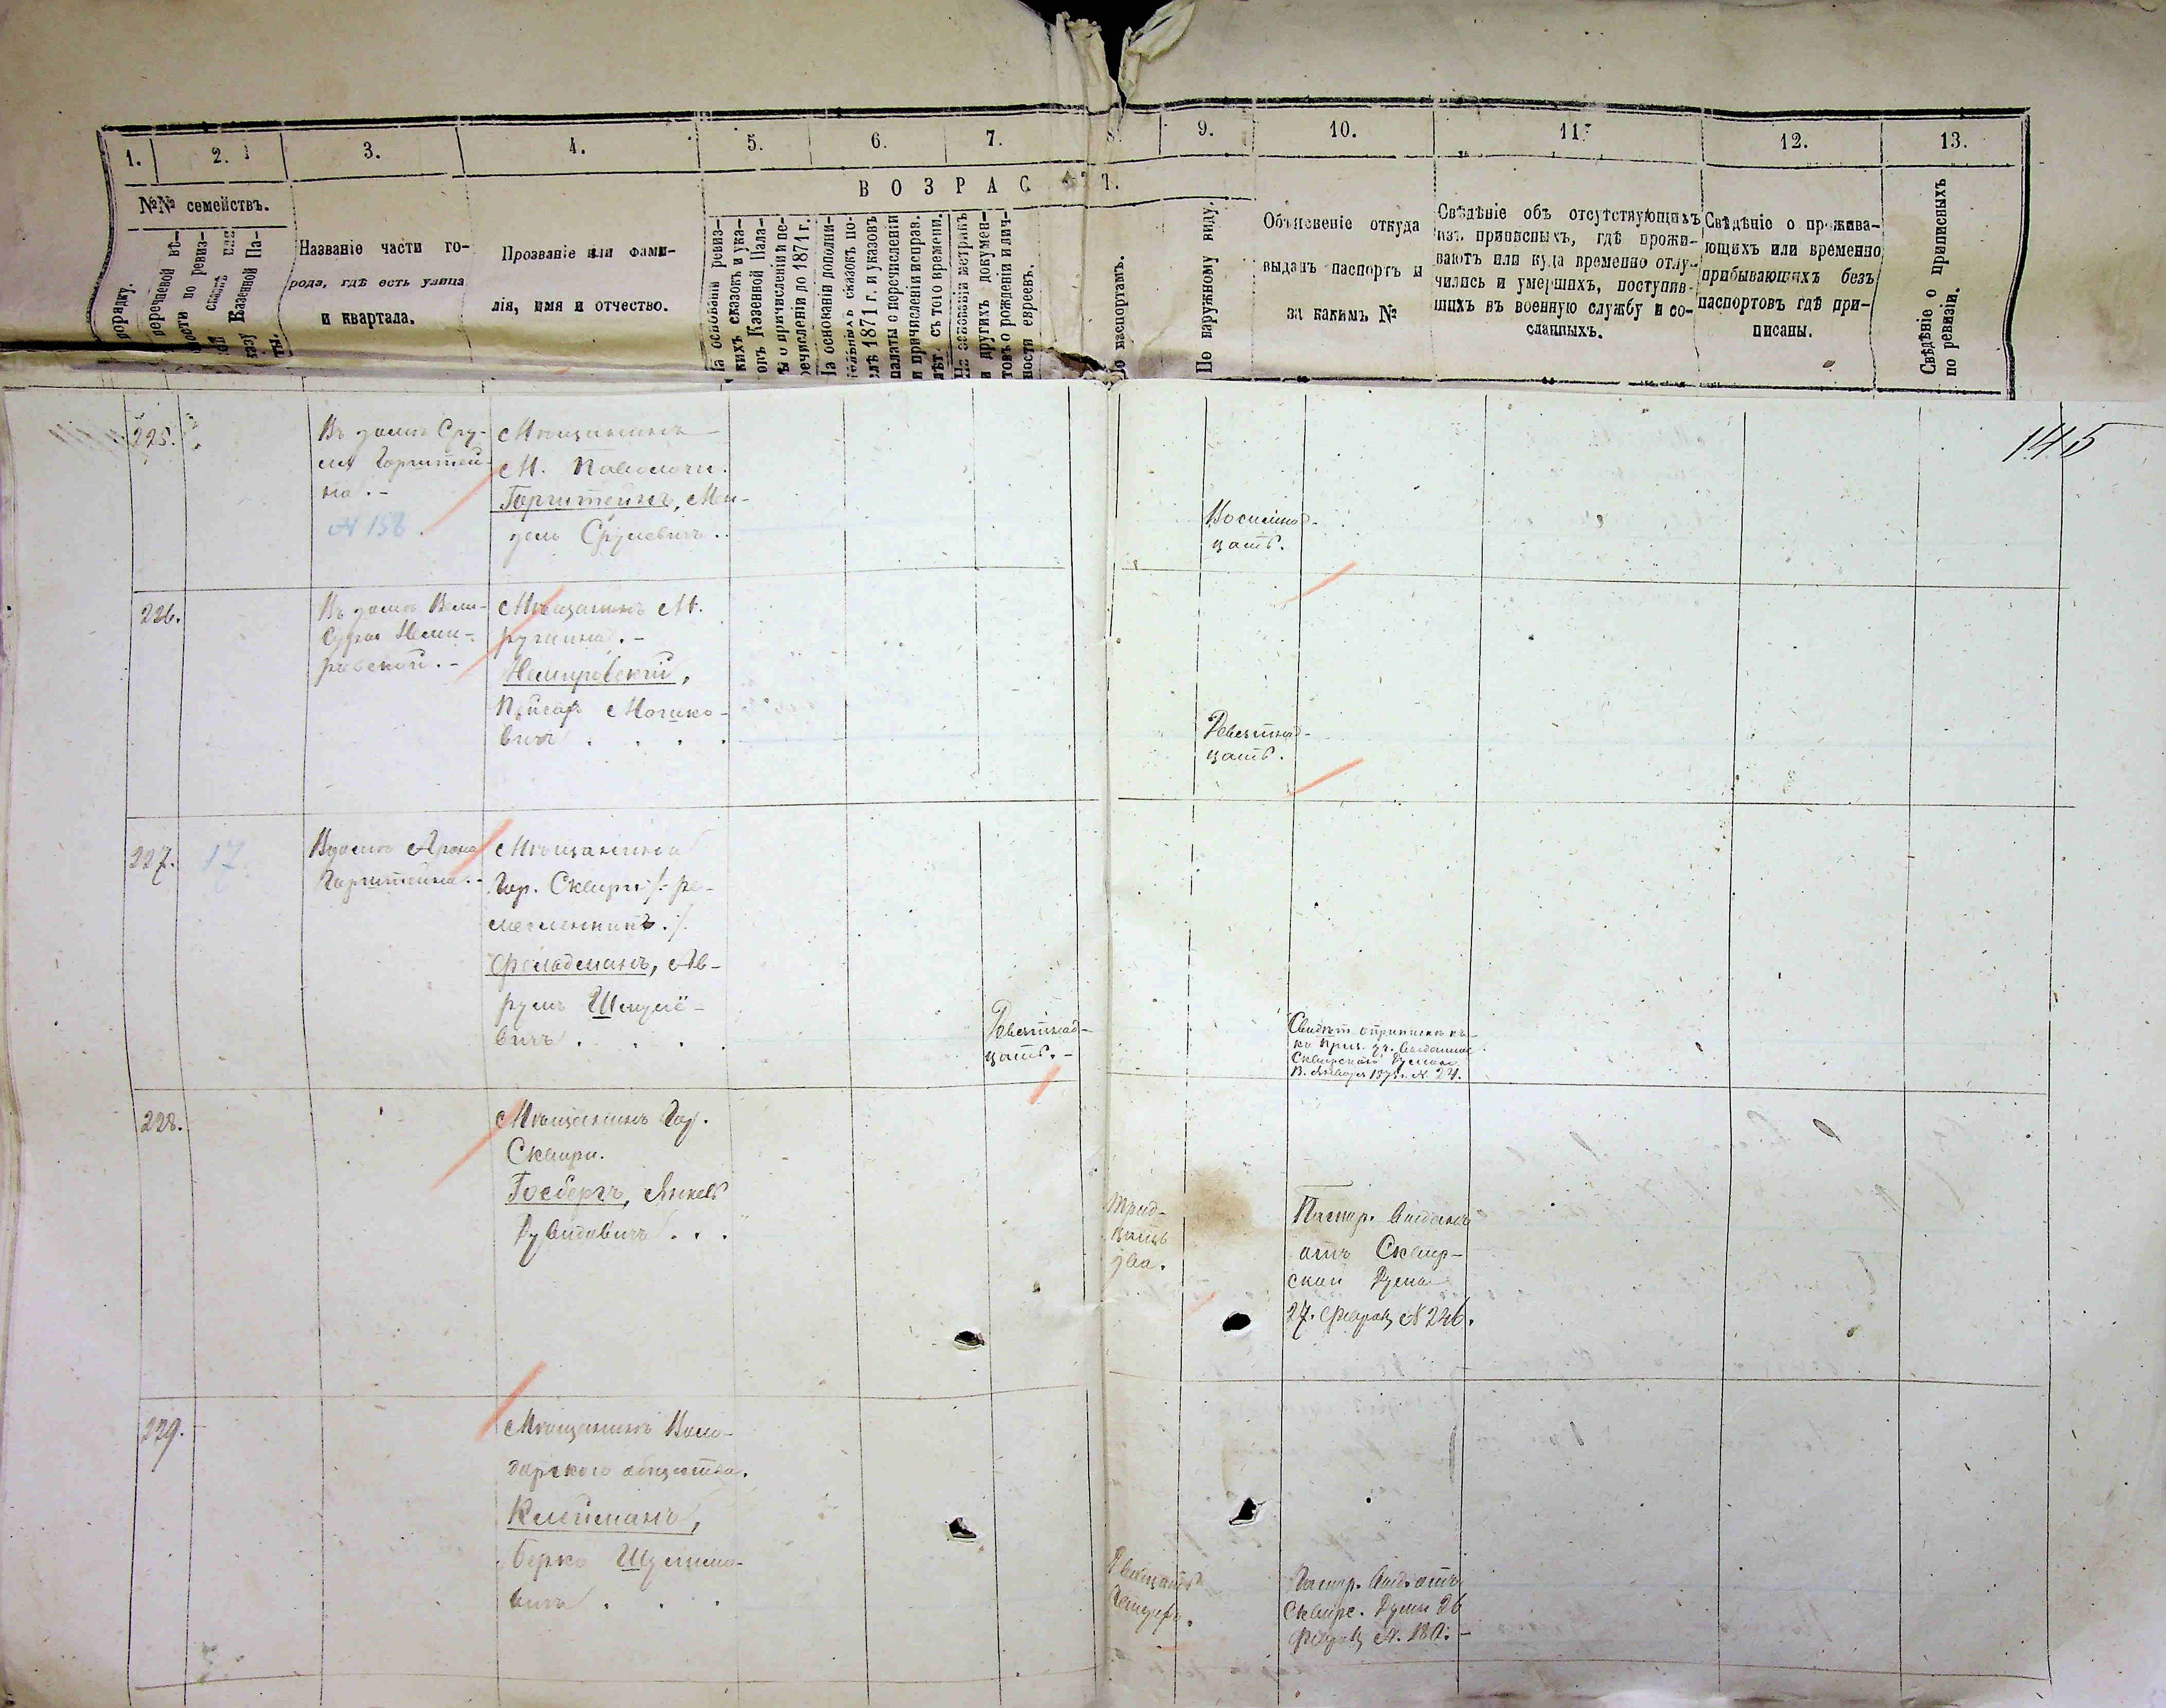 1.
2.
3.
4.
5.
6.
7.
8.
9.
10.
11.
12.
13.
№№ семействъ.
ВОЗРАСТЪ.
порядку.
перечневой вѣ-
мости по ревиз-
ой сказкѣ или
казу Казенной Па-
ты.
Названіе части го-
рода, гдѣ есть улица
и квартала.
Прозваніе или фами-
лія, имя и отчество.
На основаніи ревиз-
кихъ сказокъ и ука-
овъ Казенной Пала-
ы о причисленіи и пе-
речисленіи до 1871 г.
На основаніи дополни-
тельныхъ сказокъ по-
слѣ 1871 г. и указовъ
палаты о перечисленіи
и причисленіи исправ.
лѣт. съ того времени.
На основаніи метрикъ
и другихъ докумен-
товъ о рожденіи и лич-
ности евреевъ.
По паспортамъ.
По наружному виду.
Объясненіе откуда
выданъ паспортъ и
за какимъ №
Свѣдѣніе объ отсутствующихъ
изъ приписныхъ, гдѣ прожи-
ваютъ или куда временно отлу-
чились и умершихъ, поступив-
шихъ въ военную службу и со-
сланныхъ.
Свѣдѣніе о прожива-
ющихъ или временно
прибывающихъ безъ
паспортовъ гдѣ при-
писаны.
Свѣдѣніе о приписныхъ
по ревизіи.
145
225.
Въ домѣ Сру-
ля Горштей-
на.-
№ 158.
Мѣщанинъ
М. Паволочи.
Горштейнъ, Мен-
дель Срулевичъ..
Восемнад-
цать.
226.
Въ домѣ
Суры Неми-
ровской.-
Мѣщанинъ М.
Ружина.-
Немировскій,
Мошко-
вичъ . . . .
Девятнад-
цать.
227.
17.
Въ домѣ Арона
Горштейна.-
Мѣщанинъ
Гор. Сквиры /: ре-
месленникъ :/.
Фельдманъ, Ав-
румъ Шмулё-
вичъ . . . .
Девятнад-
цать.-
Свидѣт. о припискѣ
къ приз. уч. выданное
Сквирскою Думою
Января 187 . № 24.
228.
Мѣщанинъ Гор.
Сквиры.
Госбергъ, Янкель
Рувидовичъ . . .
Трид-
цать
два.
Паспор. выданъ
отъ Сквир-
ской Думы
27. Февра. № 246.
229.
Мѣщанинъ Воло-
дарского общества.
Клейманъ,
Берко Шулимо-
вичъ . . .
Двадцать
четыре.
Паспор. выд. отъ
Сквирс. Думы 26
Февра. №. 180.-